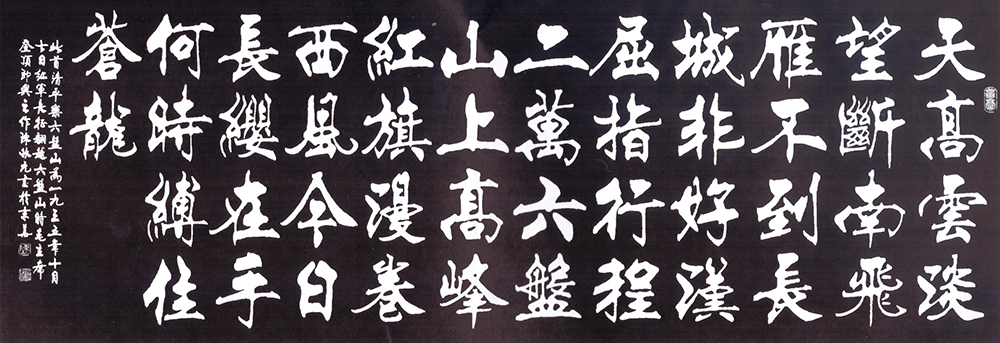 天高雲淡
望斷南飛
雁不到長
城非好漢
屈指行程
二萬六盤
山上高峰
紅旗漫卷
西風今日
長纓在手
何時縛住
蒼龍
此首清平樂六盤山為一九三五年十月
七日紅軍長征翻越六盤山時毛主席
登頂即興之作陳